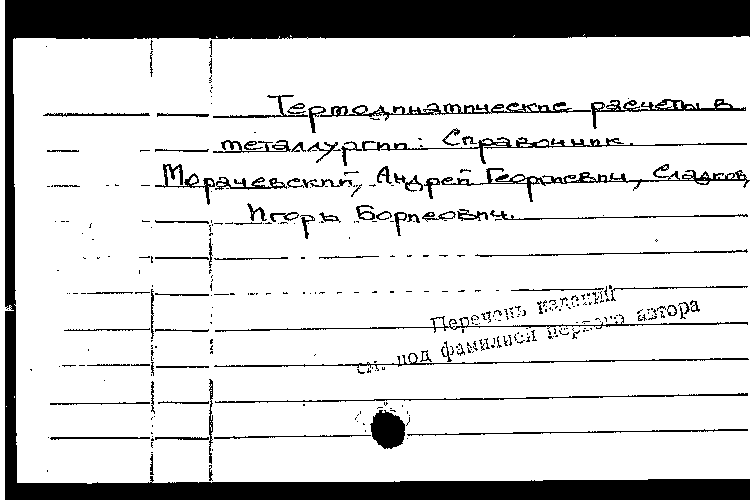 Термодинамические расчеты в
металлургии: Справочник.
Морачевский, Андрей Георгиевич, Сладков,
Игорь Борисович.
Перечень изданий
см. под фамилией первого автора